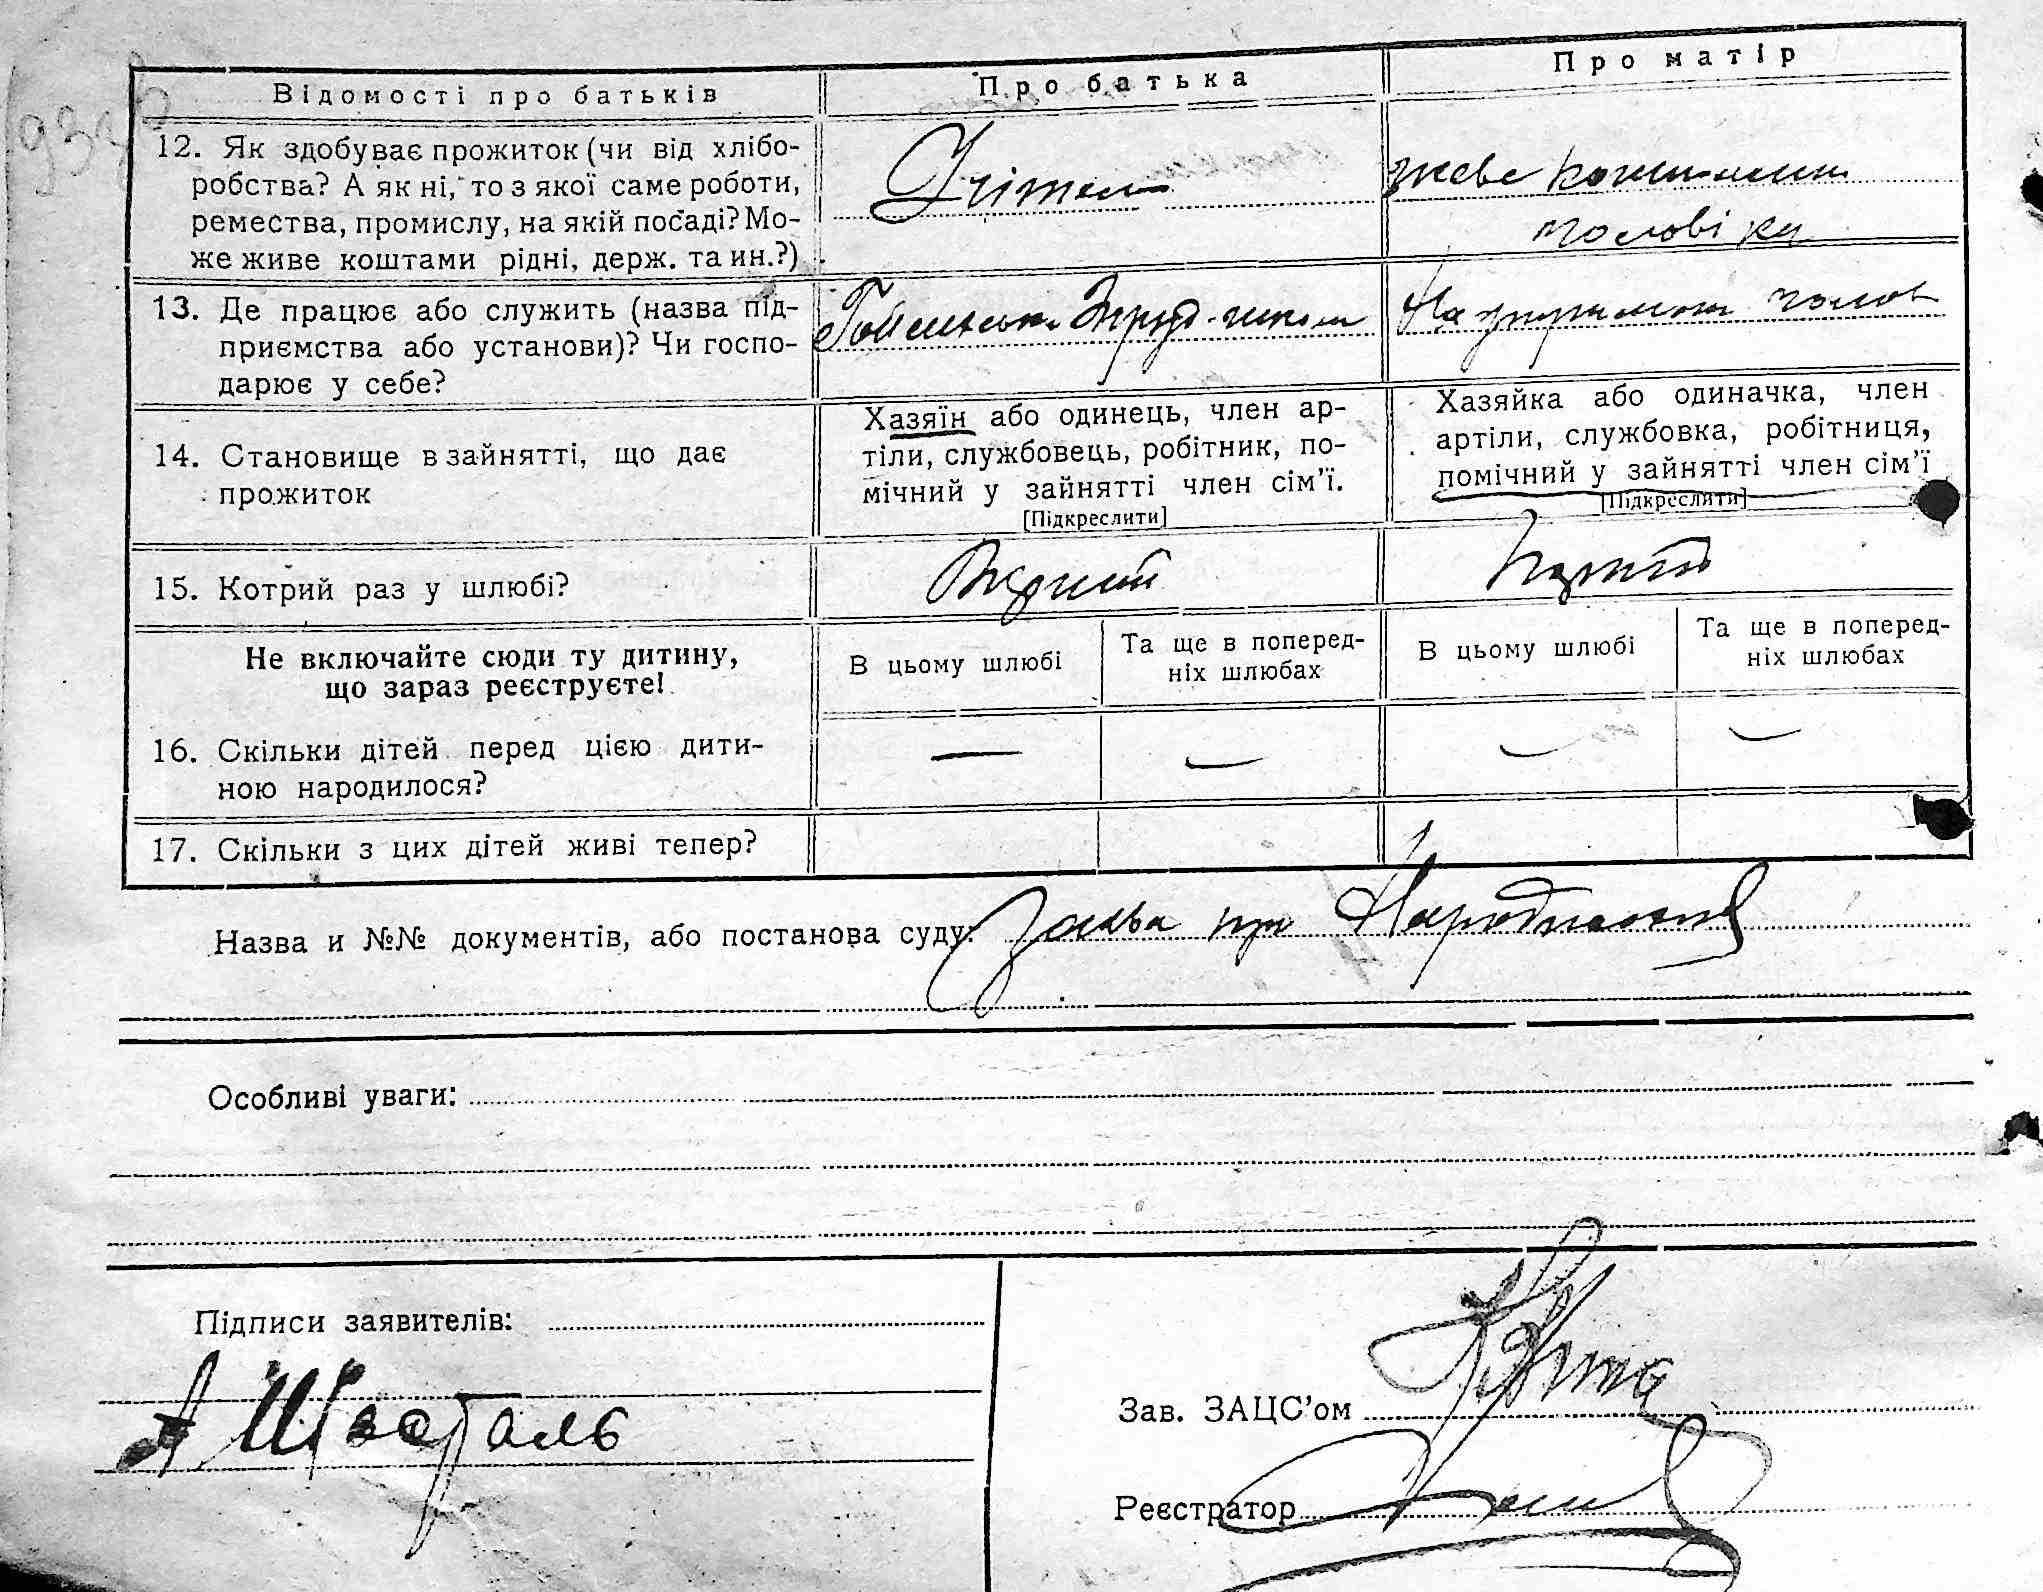 Відомості про батьків
Про батька
Про матір
12. Як здобуває прожиток (чи від хлібо-
робства? А як ні, то з якої саме роботи,
ремества, промислу, на якій посаді? Мо-
же живе коштами рідні, держ. та ин.?)
Учітель
живе коштами
чоловіка
13. Де працює або служить (назва під-
приємства або установи)? Чи госпо-
дарює у себе?
труд. школи
На утриманні чолов
14. Становище в зайнятті, що дає
прожиток
Хазяїн або одинець, член ар-
тіли, службовець, робітник, по-
мічний у зайнятті член сім'ї.
[Підкреслити]
Хазяйка або одиначка, член
артіли, службовка, робітниця,
помічний у зайнятті член сім'ї
[Підкреслити]
15. Котрий раз у шлюбі?
Перший
Перший
Не включайте сюди ту дитину,
що зараз реєструєте!
В цьому шлюбі
Та ще в поперед-
ніх шлюбах
В цьому шлюбі
Та ще в поперед-
ніх шлюбах
16. Скільки дітей перед цією дити-
ною народилося?
— — — —
17. Скільки з цих дітей живі тепер?
Назва и №№ документів, або постанова суду:
про
Особливі уваги:
Підписи заявителів:
Зав. ЗАЦС'ом
Реєстратор